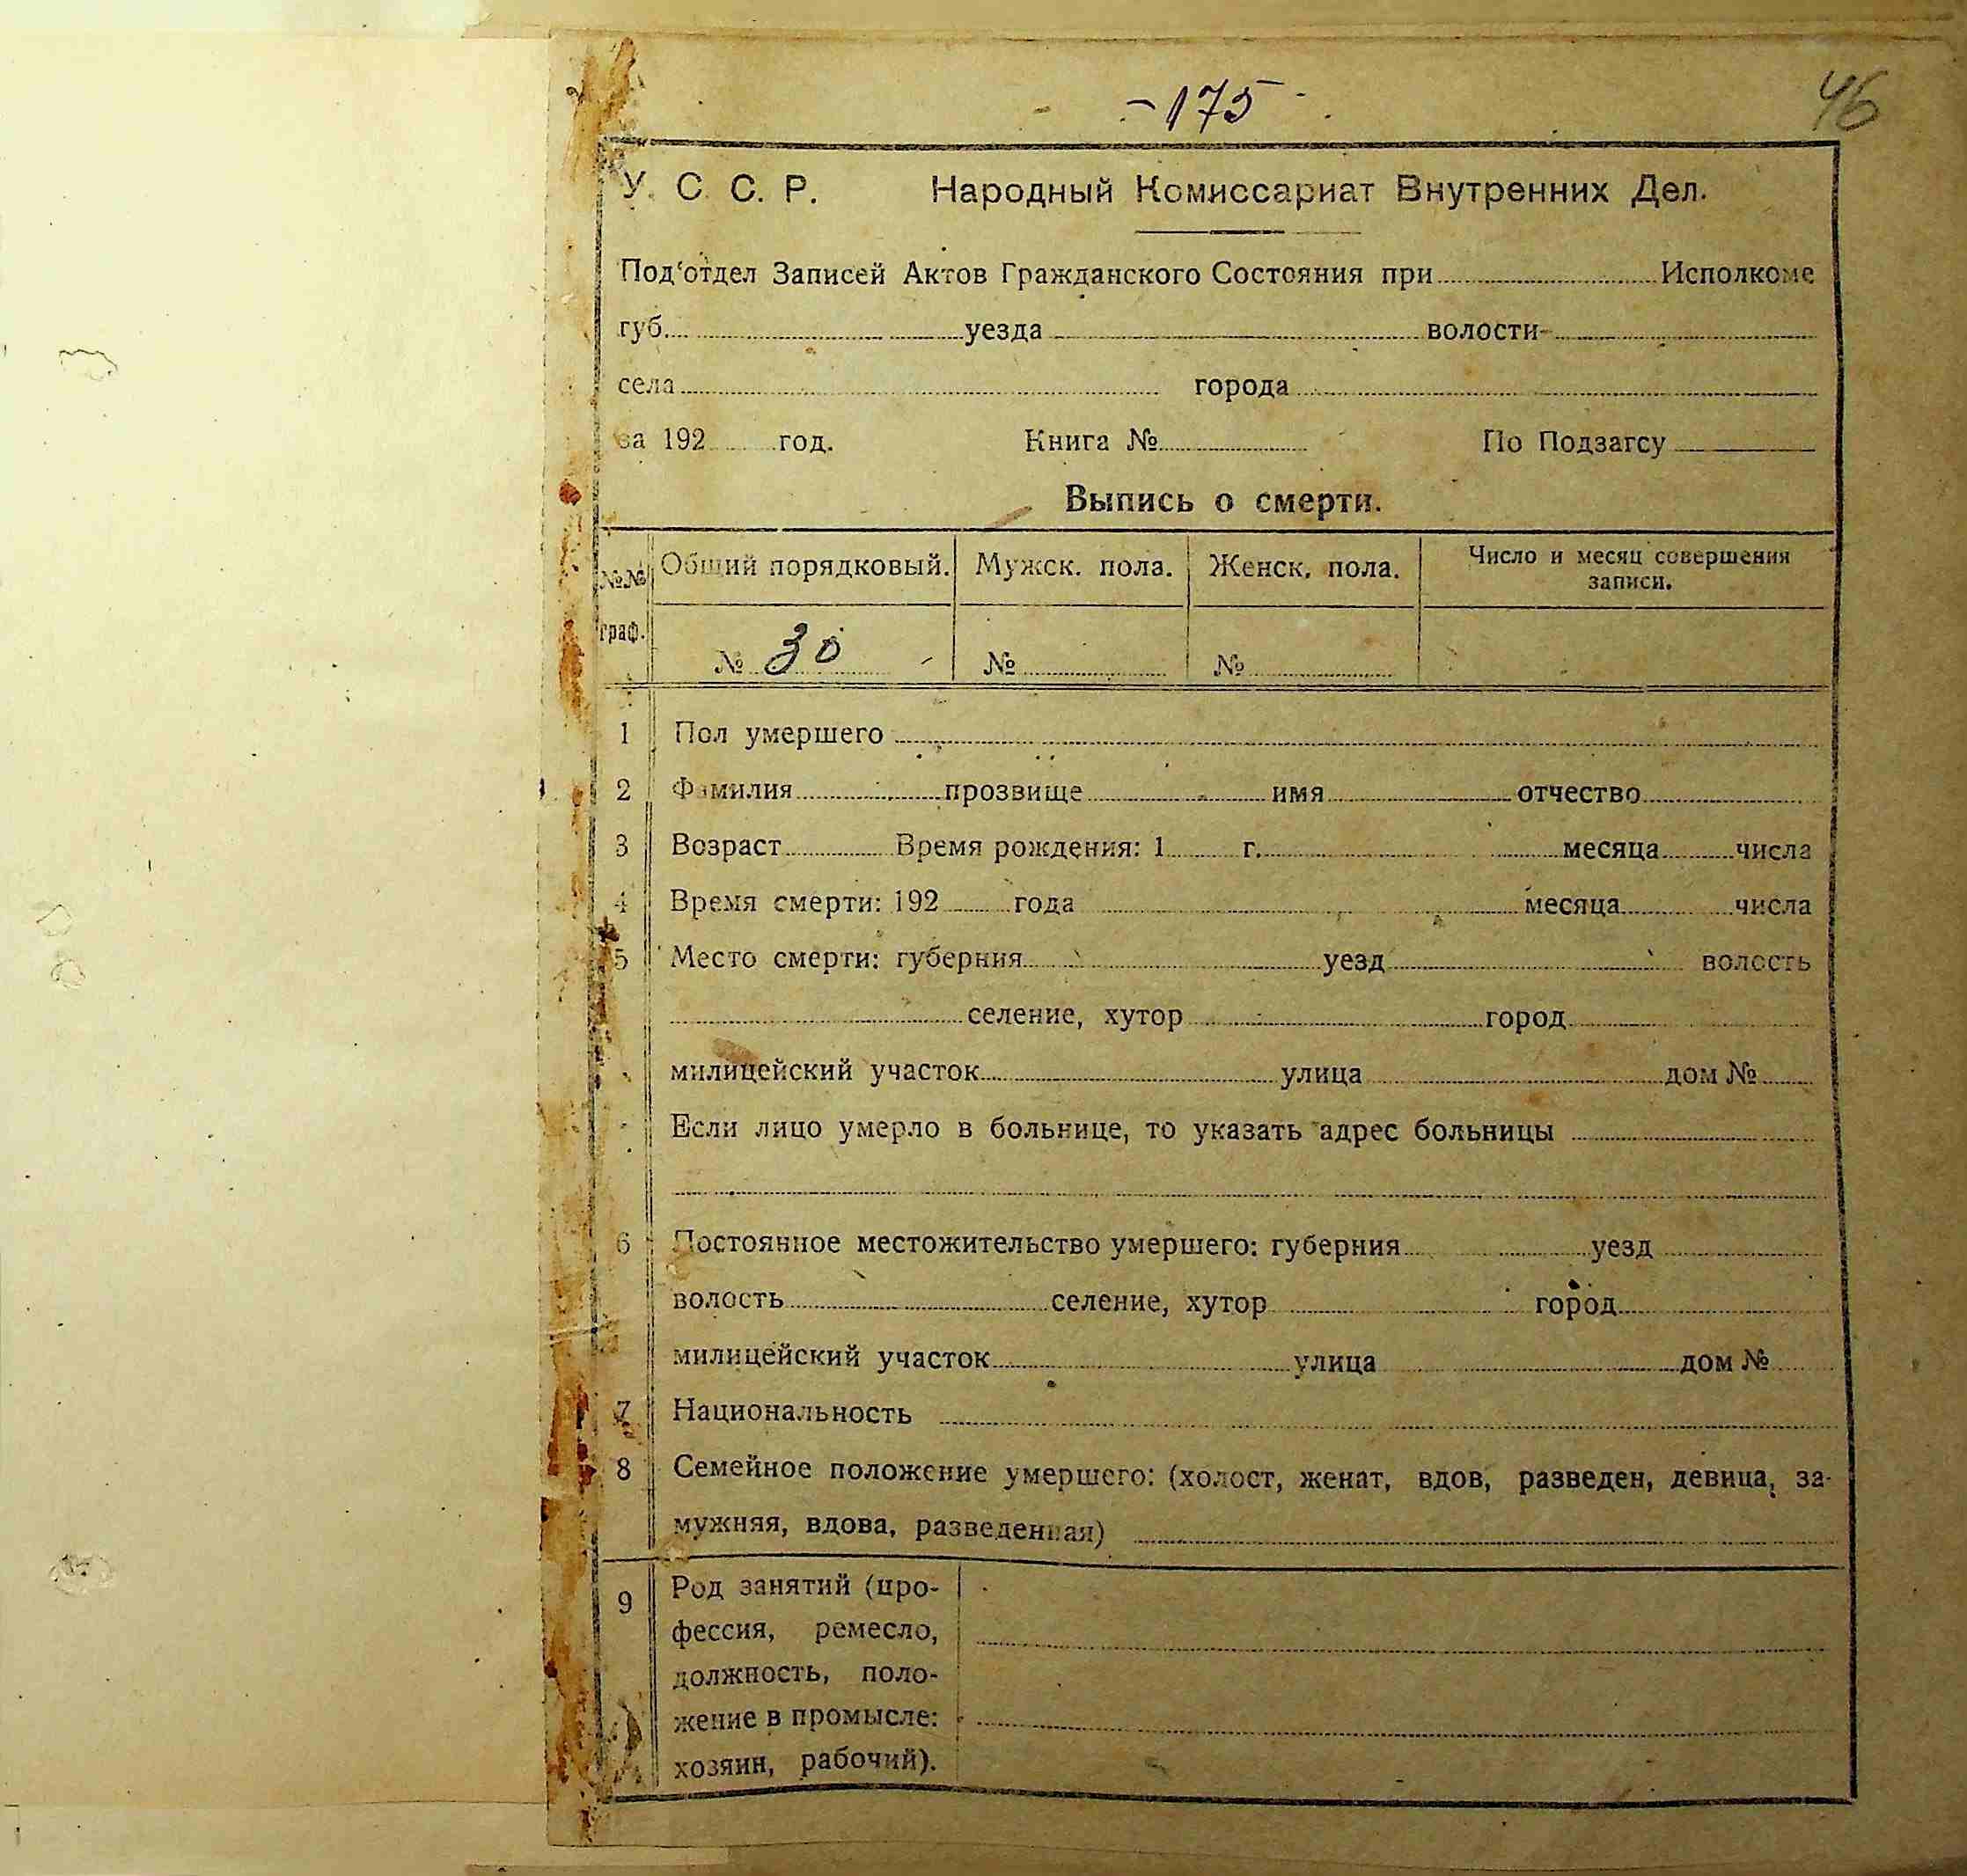 - 175 -
46
У. С. С. Р. Народный Комиссариат Внутренних Дел.
Под‘отдел Записей Актов Гражданского Состояния при Исполкоме
губ. уезда волости
села города
за 192 год. Книга № По Подзагсу
Выпись о смерти.
№№ граф. Общий порядковый. Мужск. пола. Женск. пола. Число и месяц совершения записи.
№ 30 № №
1 Пол умершего
2 Фамилия прозвище имя отчество
3 Возраст Время рождения: 1 г. месяца числа
4 Время смерти: 192 года месяца числа
5 Место смерти: губерния уезд волость
селение, хутор город
милицейский участок улица дом №
Если лицо умерло в больнице, то указать адрес больницы
6 Постоянное местожительство умершего: губерния уезд
волость селение, хутор город
милицейский участок улица дом №
7 Национальность
8 Семейное положение умершего: (холост, женат, вдов, разведен, девица, за-
мужняя, вдова, разведенная)
9 Род занятий (про-
фессия, ремесло,
должность, поло-
жение в промысле:
хозяин, рабочий).